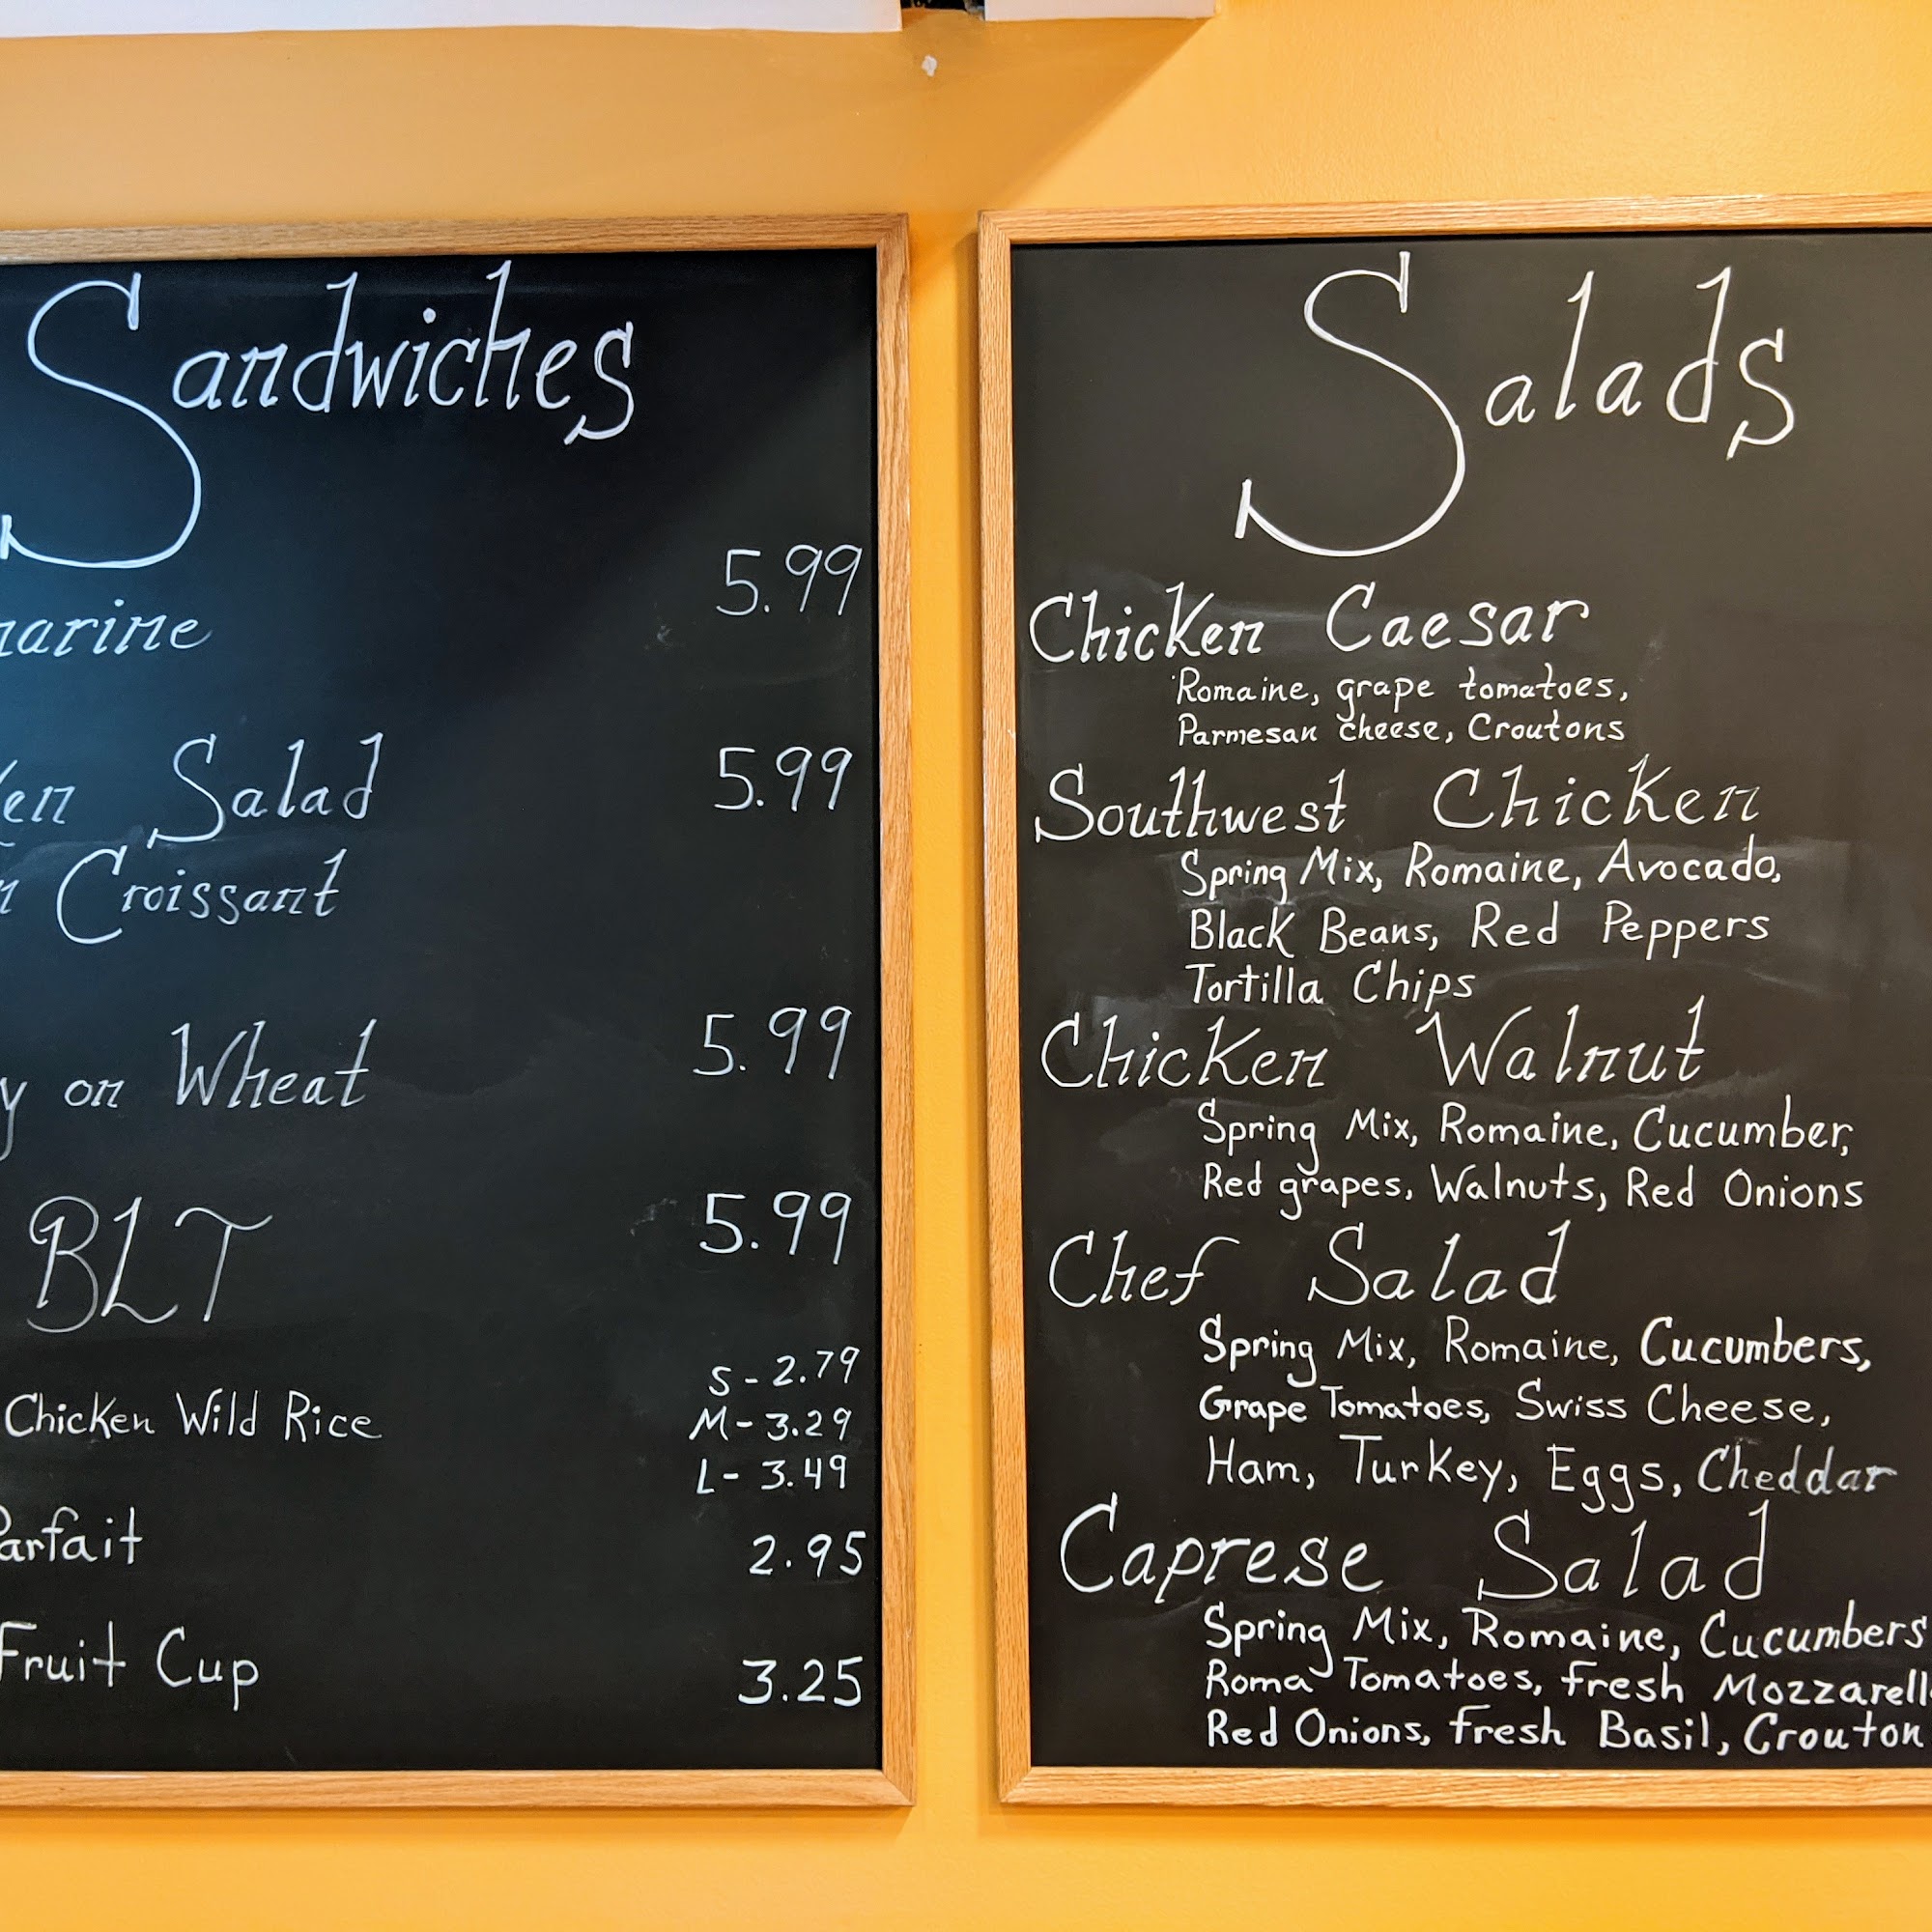 Sandwiches
5.99
Salad 5.99
Croissant
on Wheat 5.99
BLT 5.99
S-2.79
Chicken Wild Rice M-3.29
L-3.49
Parfait 2.95
Fruit Cup 3.25
Salads
Chicken Caesar
Romaine, grape tomatoes,
Parmesan cheese, Croutons
Southwest Chicken
Spring Mix, Romaine, Avocado,
Black Beans, Red Peppers
Tortilla Chips
Chicken Walnut
Spring Mix, Romaine, Cucumber,
Red grapes, Walnuts, Red Onions
Chef Salad
Spring Mix, Romaine, Cucumbers,
Grape Tomatoes, Swiss Cheese,
Ham, Turkey, Eggs, Cheddar
Caprese Salad
Spring Mix, Romaine, Cucumbers
Roma Tomatoes, fresh Mozzarell
Red Onions, fresh Basil, Crouton